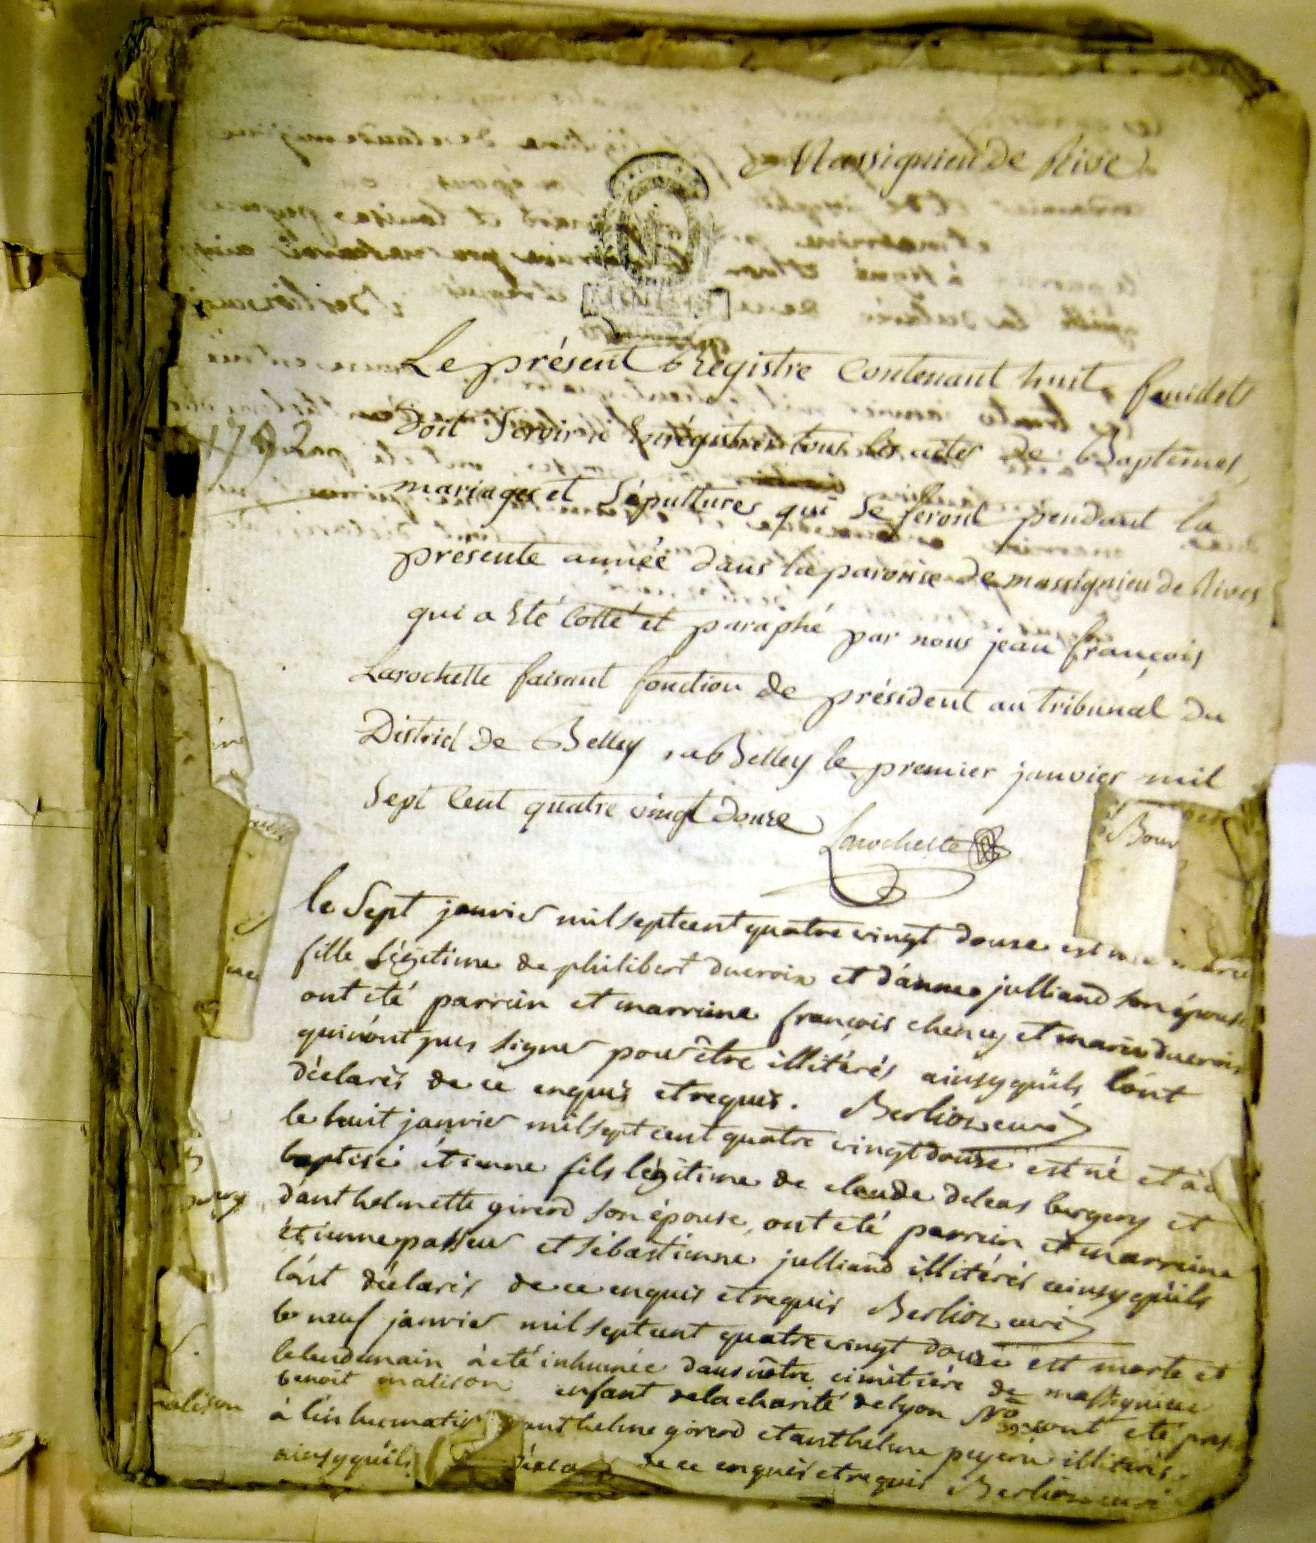 Massignieu de Rive
Le présent Registre Contenant huit feuillets
1792
Doit Servir à Enrégistrer tous les actes de Baptêmes,
mariages et Sépultures qui se feront pendant la
présente année dans la paroisse de massignieu de Rives
qui a Eté Cotté et paraphé par nous jean françois
Larochette faisant fonction de président au tribunal du
District de Belley, a Belley le premier janvier mil
Sept Cent quatre vingt douze
Larochette
Bour
le Sept janvier mil sept cent quatre vingt douze est née
fille légitime de philibert ducroix et d'anne julliand son épouse
ont été parrein et marreine françois chency et marie ducroix
qui n'ont pas signer pour être illitérés ainsy qu'ils l'ont
déclarés de ce enquis et requis. Berlioz curé
le huit janvier mil sept cent quatre vingt douze est né et a été
baptisé étienne fils légitime de claude deleas bergery et
d'anthelmette girerd son épouse, ont été parrein et marreine
étienne passeur et sébastienne julliand illitérés ainsy qu'ils
l'ont déclarés de ce enquis et requis Berlioz curé
le neuf janvier mil sept cent quatre vingt douze est morte et
le lendemain à été inhumée dans nôtre cimitière de massignieu
benoit malison enfant de la charité de lyon No sont été
malison
à l'inhumation anthelme girerd et anthelme peysin illitérés
ainsy qu'ils de ce enquis et requis Berlioz curé